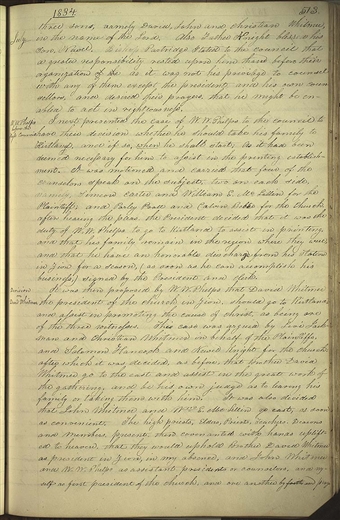 1834
513.
July
three sons, namely David, John and Christian Whitmer
in the name of the Lord. Also Father Knight blessed his
son, Newel. Bishop Partridge stated to the council that
a greater responsibility rested upon him than before their
organization &c as it was not his privilege to counsel
with any of them except the president, and his own coun-
sellors, and desired their prayers that he might be en-
abled to act in righteousness.
W. W. Phelps
I next presented the case of W. W. Phelps to the council to
have their decision whether he should take his family to
Kirtland, and if so, when he shall start; as it had been
deemed necessary for him to assist in the printing establish-
ment. It was motioned and carried that four of the
counselors speak on the subject, two on each side,
namely, Simeon Carter and William E. McLellin for the
Plaintiff; and Parley Pratt and Calvin Bebee for the church.
after hearing the pleas the President decided that it was the
duty of W. W. Phelps to go to Kirtland to assist in printing
and that his family remain in the region where they were,
and that he have an honorable discharge from his station
in Zion for a season, (as soon as he can accomplish his
business,) signed by the President and clerk.
Decision
David Whitmer
It was then proposed by W. W. Phelps that David Whitmer
the president of the church in Zion, should go to Kirtland,
and assist in promoting the cause of Christ, as being one
of the three witnesses. This case was argued by Levi Jack-
man and Christian Whitmer in behalf of the Plaintiffs,
and Solomon Hancock and Newel Knight for the church
after which it was decided, as before, that brother David
Whitmer go to the east and assist in the great work of
the gathering, and be his own judge as to leaving his
family or taking them with him. It was also decided
that John Whitmer and Wm. E. McLellin go east, as soon
as convenient. The high priests, elders, Priests, Teachers, Deacons
and Members, present then covenanted with hands uplift-
ed to heaven that they would uphold Brother David Whitmer
as president in Zion, in my absence, and John Whitmer
and W. W. Phelps as assistant presidents or counselors, and my-
self as first president of the church, and one another by faith and prayer